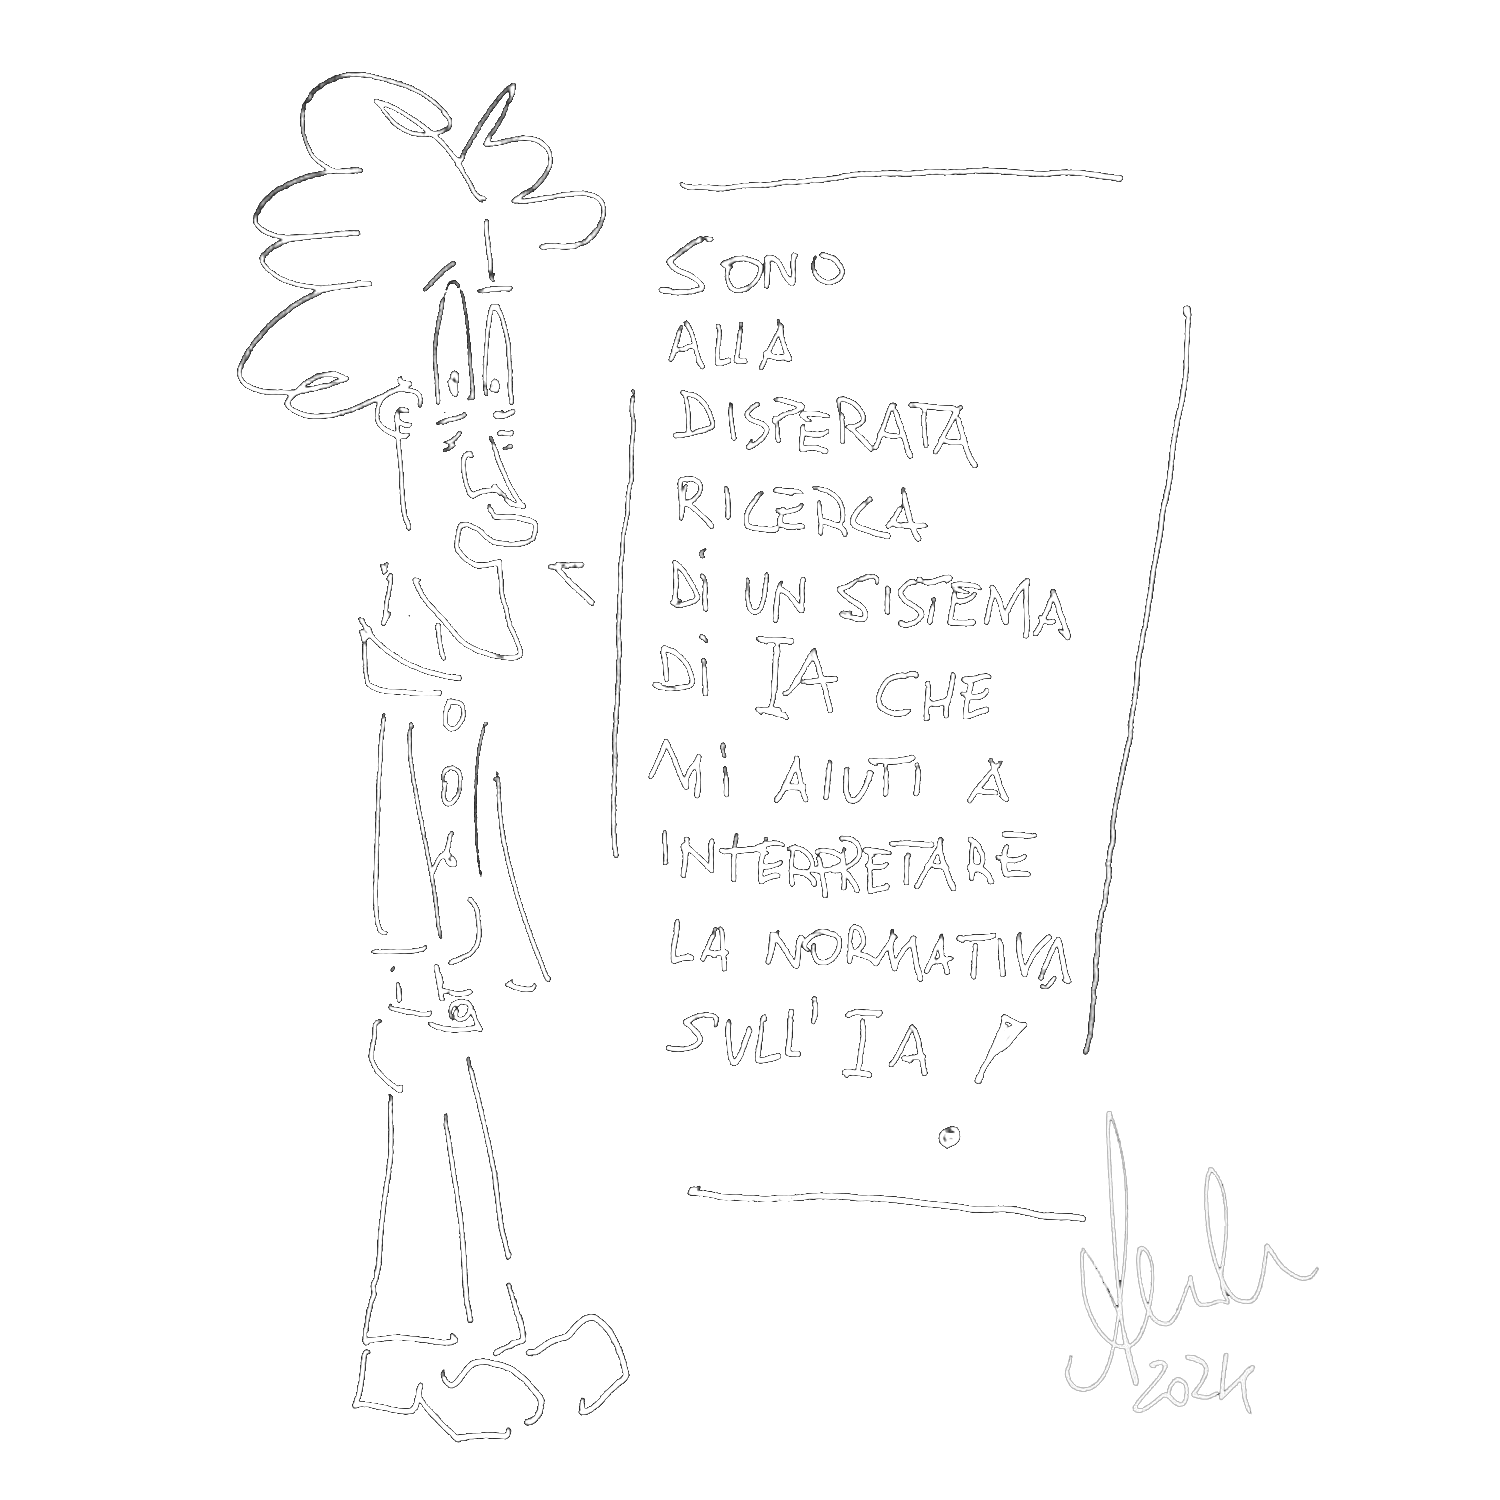 SONO
ALLA
DISPERATA
RICERCA
Di UN SISTEMA
Di IA CHE
Mi AIUTI A
INTERPRETARE
LA NORMATIVA
SULL'IA!
2024